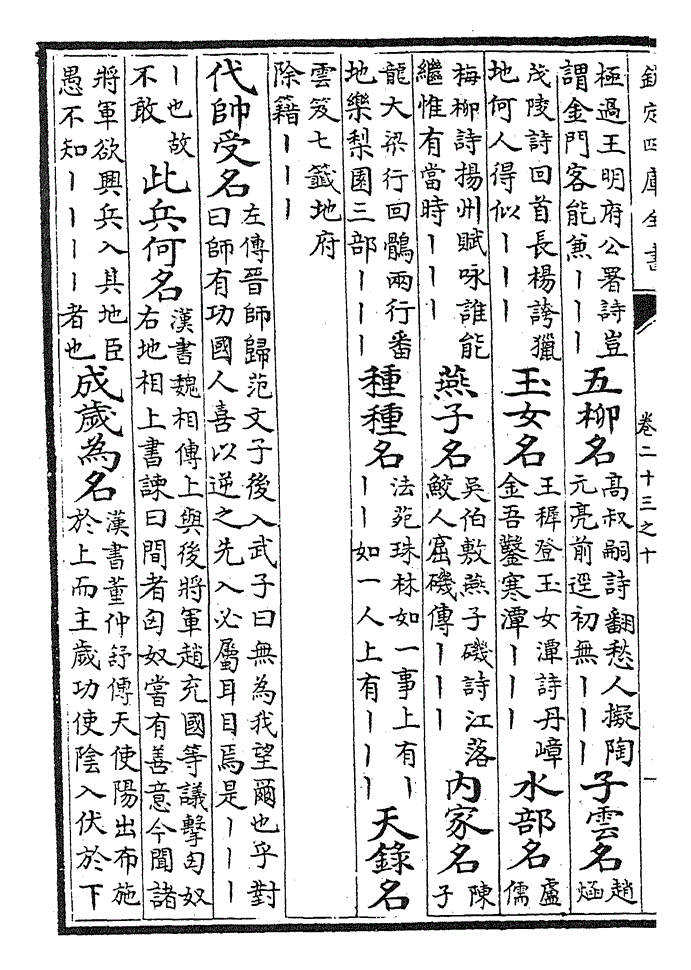 欽定四庫全書 卷二十三之十 一
極過王明府公署詩豈
謂金門客能兼丨丨丨
五柳名
高叔嗣詩翻愁人擬陶
元亮前逕初無丨丨丨
子雲名
趙
茂陵詩回首長楊誇獵
地何人得似丨丨丨
玉女名
王穉登玉女潭詩丹嶂
金吾鑿寒潭丨丨丨
水部名
盧
儒
梅柳詩揚州賦咏誰能
繼惟有當時丨丨丨
燕子名
吳伯敷燕子磯詩江落
鮫人窟磯傳丨丨丨
內家名
陳
子
龍大梁行回鶻兩行番
地樂梨園三部丨丨丨
種種名
法苑珠林如一事上有丨
丨丨如一人上有丨丨丨
天錄名
雲笈七籤地府
除籍丨丨丨
代帥受名
左傳晉師歸范文子後入武子曰無為我望爾也乎對
曰師有功國人喜以逆之先入必屬耳目焉是丨丨丨
丨也故
不敢
此兵何名
漢書魏相傳上與後將軍趙充國等議擊匈奴
右地相上書諫曰間者匈奴嘗有善意今聞諸
將軍欲興兵入其地臣
愚不知丨丨丨丨者也
成歲為名
漢書董仲舒傳天使陽出布施
於上而主歲功使陰入伏於下